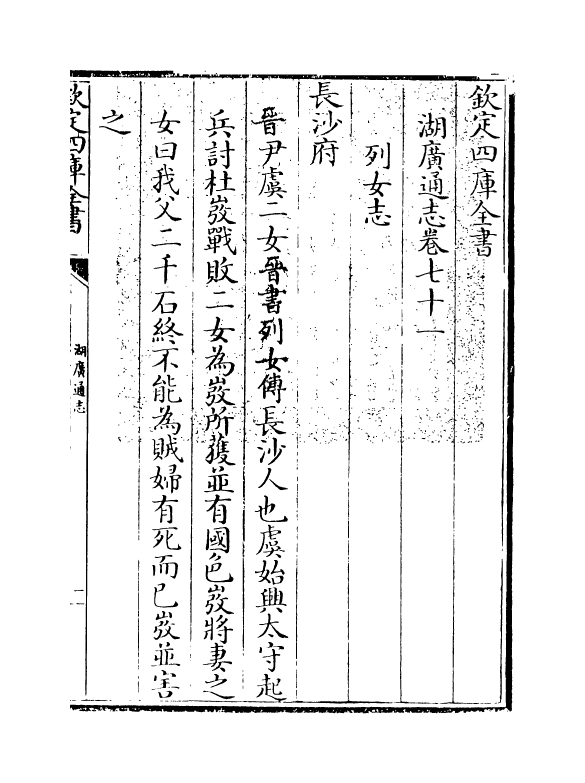 欽定四庫全書
湖廣通志卷七十一
列女志
長沙府
晉尹虞二女晉書列女傳長沙人也虞始興太守起
兵討杜弢戰敗二女為弢所獲並有國色弢將妻之
女曰我父二千石終不能為賊婦有死而已弢並害
之
欽定四庫全書
湖廣通志